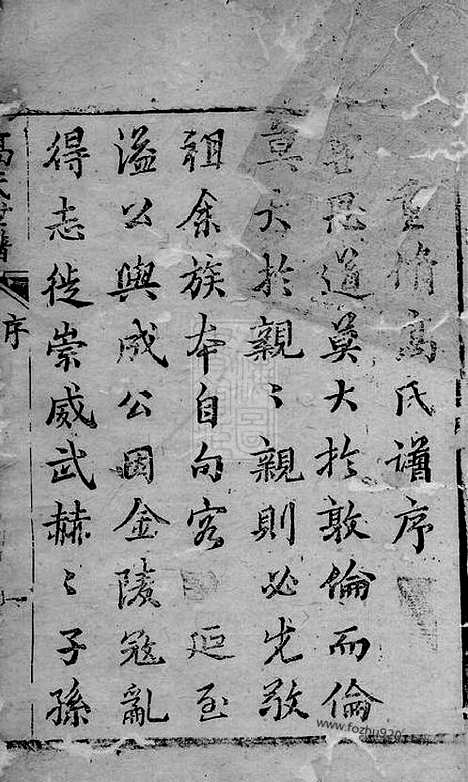 重脩高氏譜序
思道莫大於敦倫而倫
莫大於親〻親則必先敬
祖余族本自向客 迊至
溢公與成公因金陵寇亂
得志徙崇威武赫〻子孫
高氏世譜
序
www.fozhu920.com